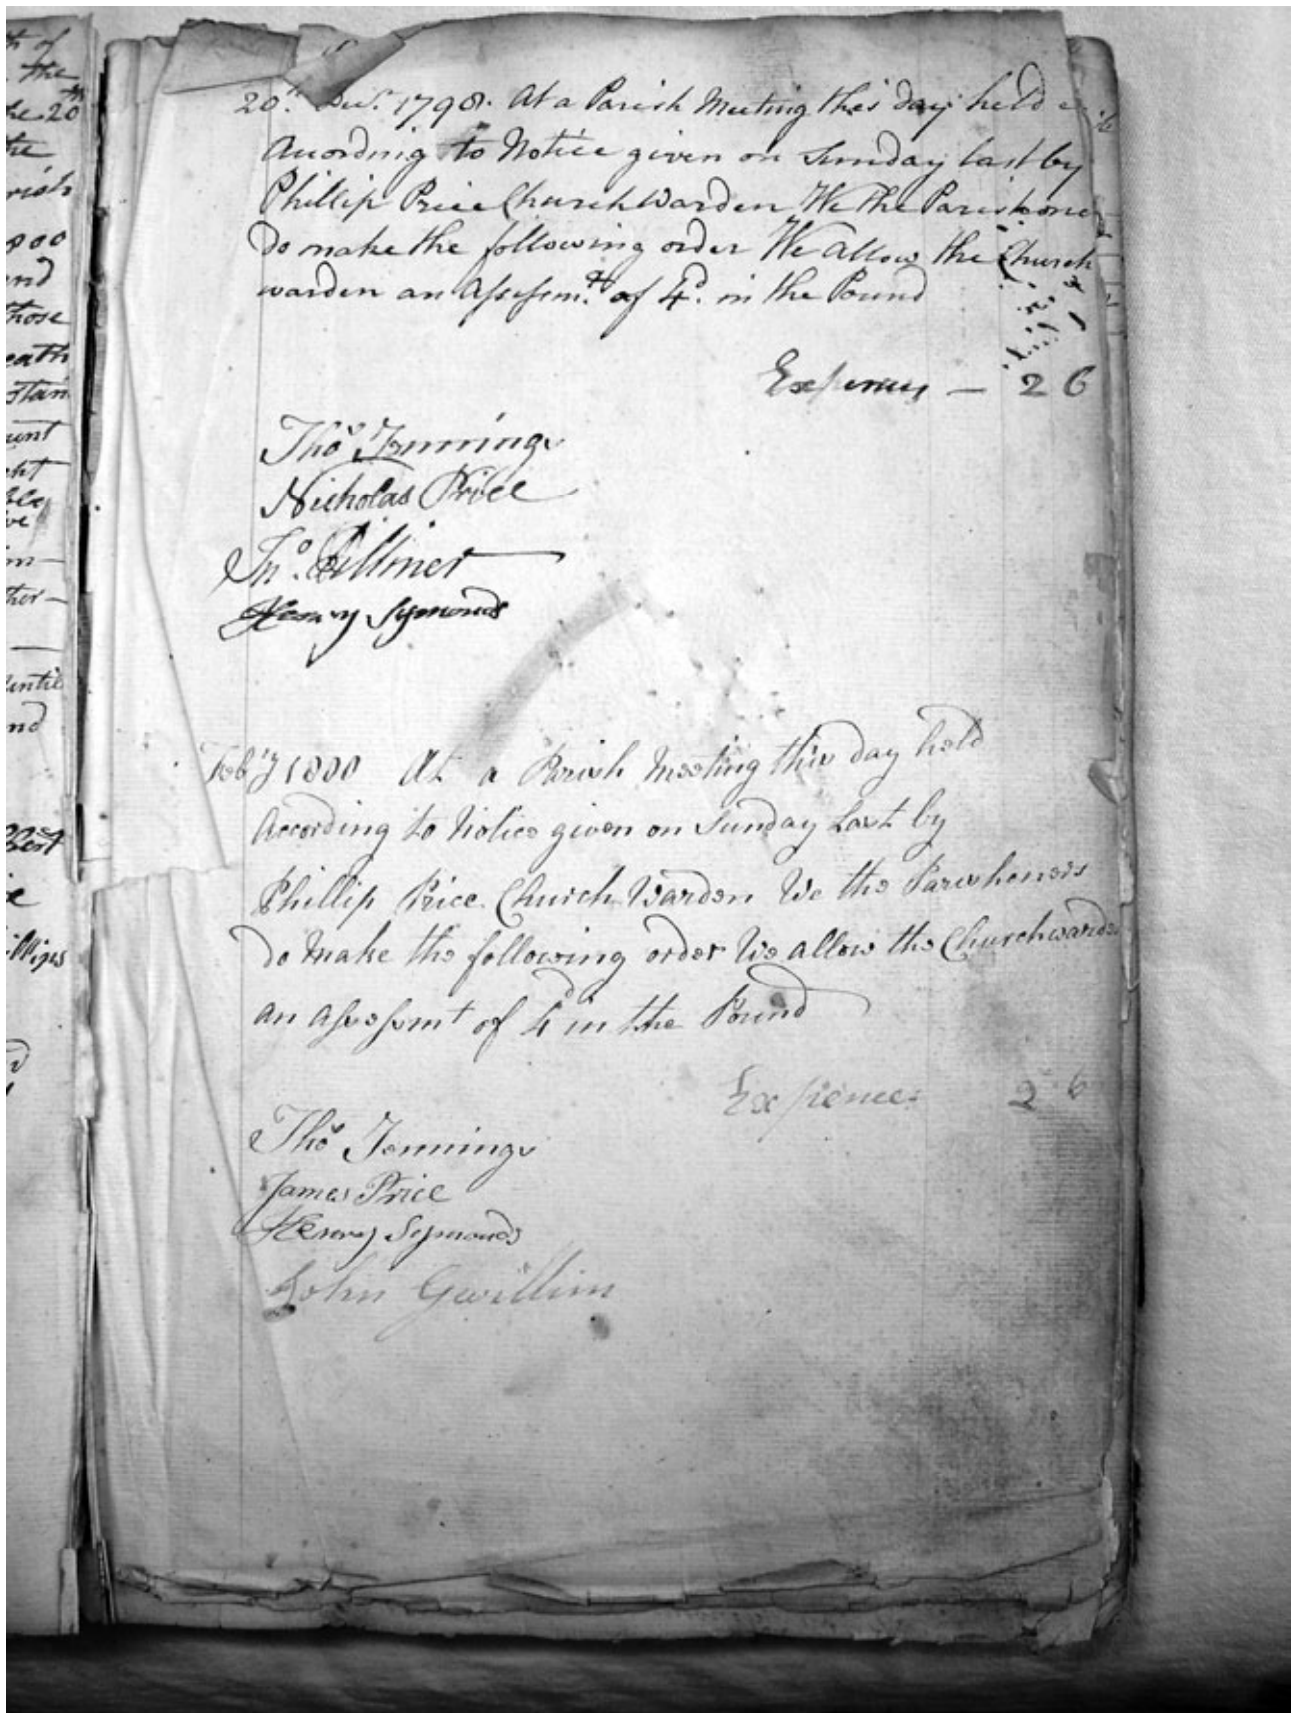 20th Decr. 1798. At a Parish Meeting this day held
Acording to Notice given on Sunday last by
Phillip Price Church Warden We The Parishoners
do make the following order We Allow the Church
warden an Assessmt. of 4d. in the Pound
Expences — 2 6
Thos Jennings
Nicholas Price
Jno. Pillner
Henry Symonds
Feb'y 1800 At a Parish Meeting this day held
According to Notice given on Sunday Last by
Phillip Price Church Warden We the Parishoners
do Make the following order We allow the Churchwarden
an assessmt of 4d in the Pound
Expences 2 6
Thos Jennings
James Price
Henry Symonds
John Gwillim
of
the
the 20th
the
rish
1800
and
those
eath
stan
ount
ght
ther—
until
nd
llips